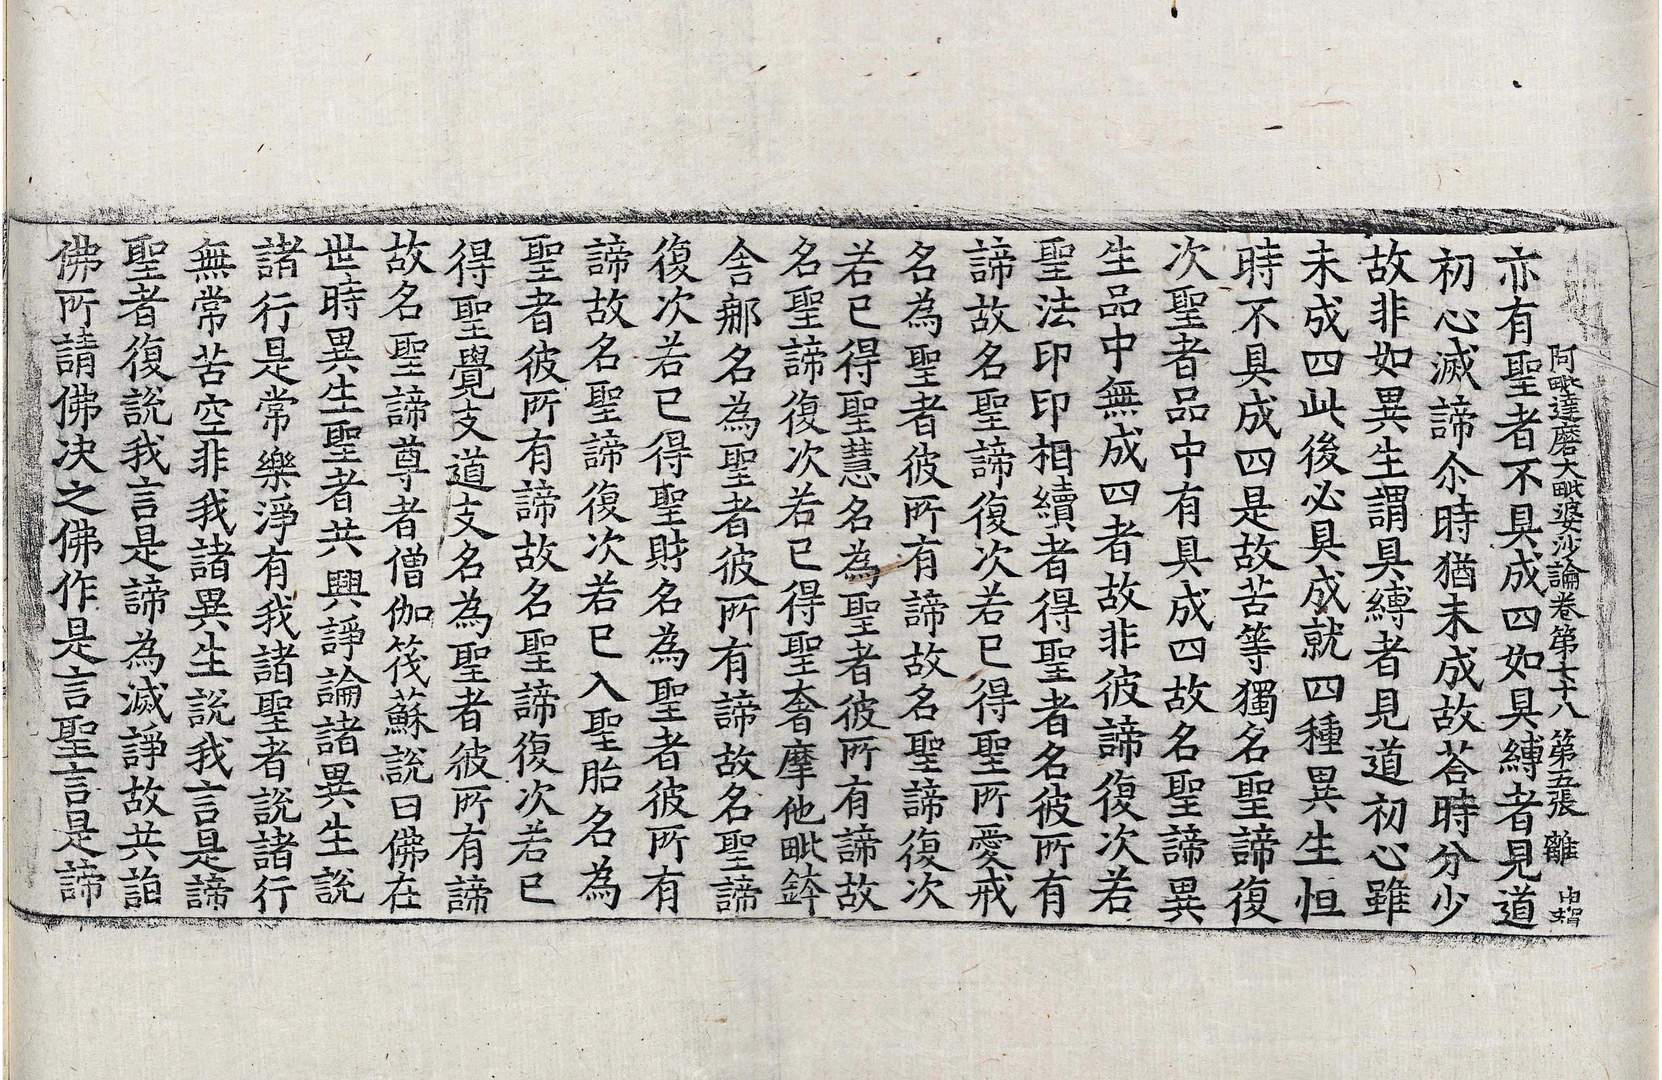 阿毗達磨大毗婆沙論卷第七十八 第五張 離
亦有聖者不具成四如具縛者見道
初心滅諦尒時猶未成故荅時分少
故非如異生謂具縛者見道初心雖
未成四此後必具成就四種異生恒
時不具成四是故苦等獨名聖諦復
次聖者品中有具成四故名聖諦異
生品中無成四者故非彼諦復次若
聖法印印相續者得聖者名彼所有
諦故名聖諦復次若已得聖所愛戒
名為聖者彼所有諦故名聖諦復次
若已得聖慧名為聖者彼所有諦故
名聖諦復次若已得聖奢摩他毗鉢
舍那名為聖者彼所有諦故名聖諦
復次若已得聖財名為聖者彼所有
諦故名聖諦復次若已入聖胎名為
聖者彼所有諦故名聖諦復次若已
得聖覺支道支名為聖者彼所有諦
故名聖諦尊者僧伽筏蘇說曰佛在
世時異生聖者共興諍論諸異生說
諸行是常樂淨有我諸聖者說諸行
無常苦空非我諸異生說我言是諦
聖者復說我言是諦為滅諍故共詣
佛所請佛決之佛作是言聖言是諦